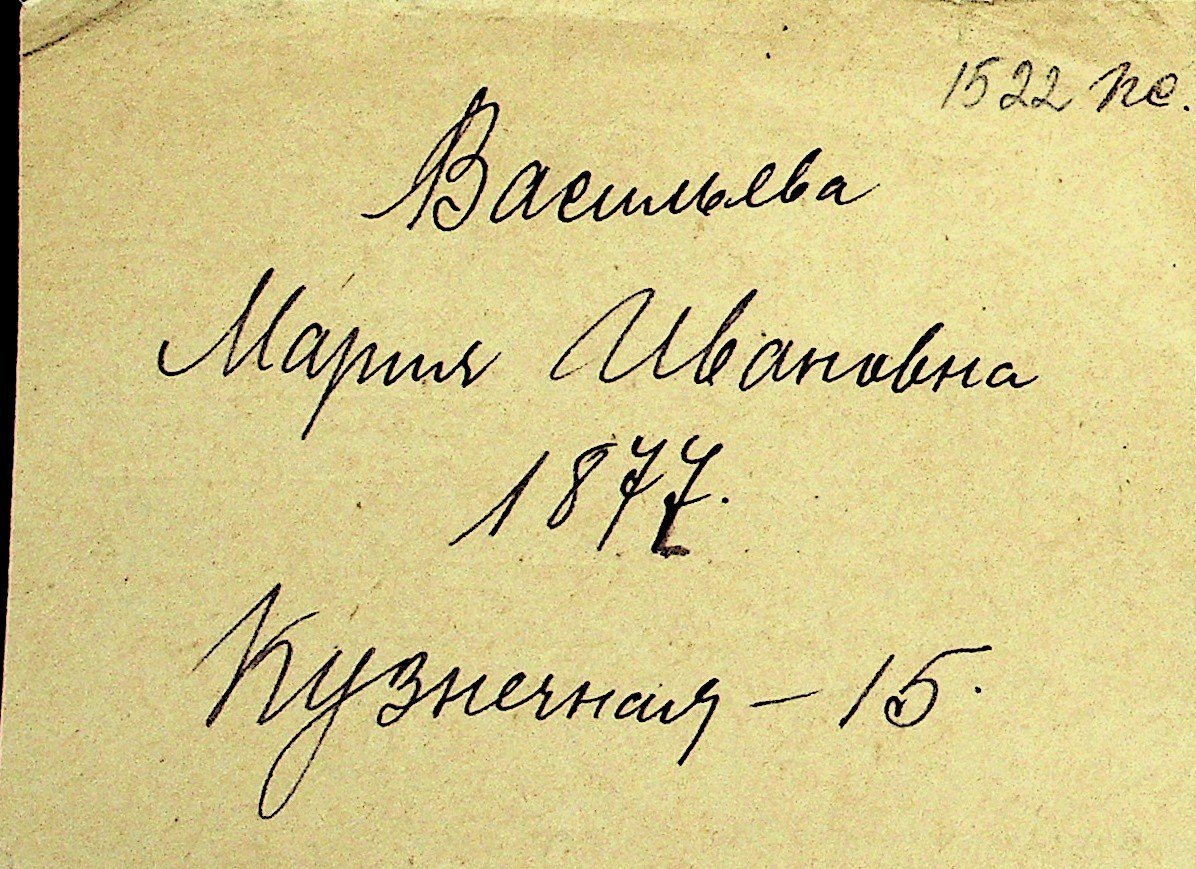 1522 пс.
Васильева
Мария Ивановна
1877.
Кузнечная - 15.